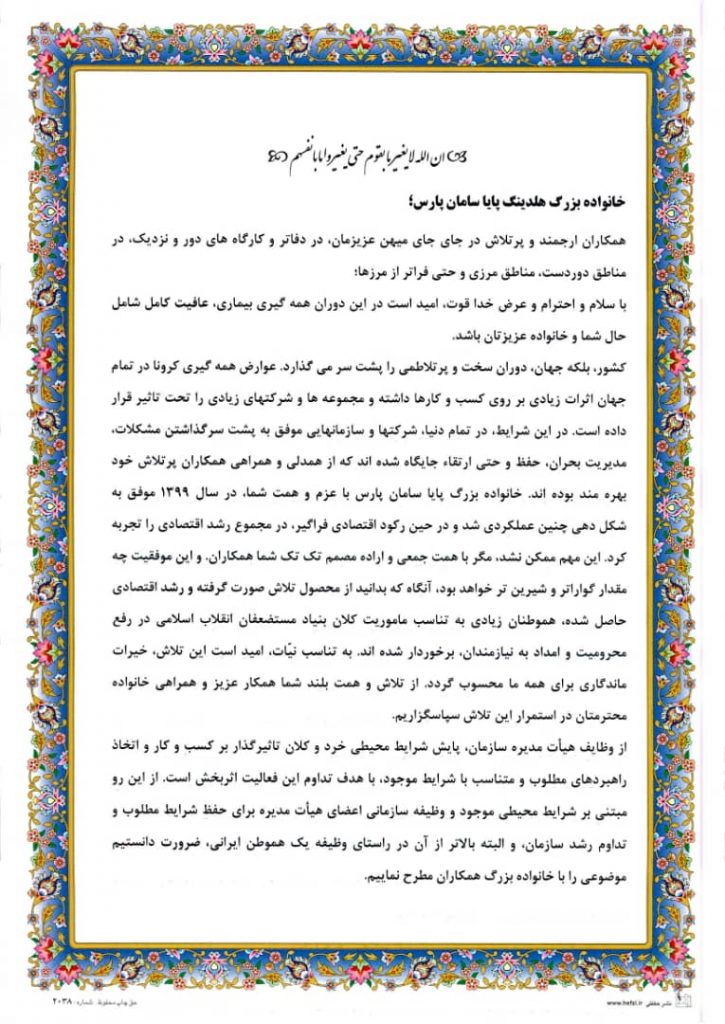 ان الله لا یغیر ما بقوم حتی یغیروا ما بانفسهم
خانواده بزرگ هلدینگ پایا سامان پارس؛
همکاران ارجمند و پرتلاش در جای جای میهن عزیزمان، در دفاتر و کارگاه های دور و نزدیک، در
مناطق دوردست، مناطق مرزی و حتی فراتر از مرزها؛
با سلام و احترام و عرض خدا قوت، امید است در این دوران همه گیری بیماری، عافیت کامل شامل
حال شما و خانواده عزیزتان باشد.
کشور، بلکه جهان، دوران سخت و پرتلاطمی را پشت سر می گذارد. عوارض همه گیری کرونا در تمام
جهان اثرات زیادی بر روی کسب و کارها داشته و مجموعه ها و شرکتهای زیادی را تحت تاثیر قرار
داده است. در این شرایط، در تمام دنیا، شرکتها و سازمانهایی موفق به پشت سرگذاشتن مشکلات،
مدیریت بحران، حفظ و حتی ارتقاء جایگاه شده اند که از همدلی و همراهی همکاران پرتلاش خود
بهره مند بوده اند. خانواده بزرگ پایا سامان پارس با عزم و همت شما، در سال ۱۳۹۹ موفق به
شکل دهی چنین عملکردی شد و در حین رکود اقتصادی فراگیر، در مجموع رشد اقتصادی را تجربه
کرد. این مهم ممکن نشد، مگر با همت جمعی و اراده مصمم تک تک شما همکاران. و این موفقیت چه
مقدار گواراتر و شیرین تر خواهد بود، آنگاه که بدانید از محصول تلاش صورت گرفته و رشد اقتصادی
حاصل شده، هموطنان زیادی به تناسب ماموریت کلان بنیاد مستضعفان انقلاب اسلامی در رفع
محرومیت و امداد به نیازمندان، برخوردار شده اند. به تناسب نیّات، امید است این تلاش، خیرات
ماندگاری برای همه ما محسوب گردد. از تلاش و همت بلند شما همکار عزیز و همراهی خانواده
محترمتان در استمرار این تلاش سپاسگزاریم.
از وظایف هیأت مدیره سازمان، پایش شرایط محیطی خرد و کلان تاثیرگذار بر کسب و کار و اتخاذ
راهبردهای مطلوب و متناسب با شرایط موجود، با هدف تداوم این فعالیت اثربخش است. از این رو
مبتنی بر شرایط محیطی موجود و وظیفه سازمانی اعضای هیأت مدیره برای حفظ شرایط مطلوب و
تداوم رشد سازمان، و البته بالاتر از آن در راستای وظیفه یک هموطن ایرانی، ضرورت دانستیم
موضوعی را با خانواده بزرگ همکاران مطرح نماییم.
نشر حفظی www.hefzi.ir
حق چاپ محفوظ. شماره: ۲۰۳۸